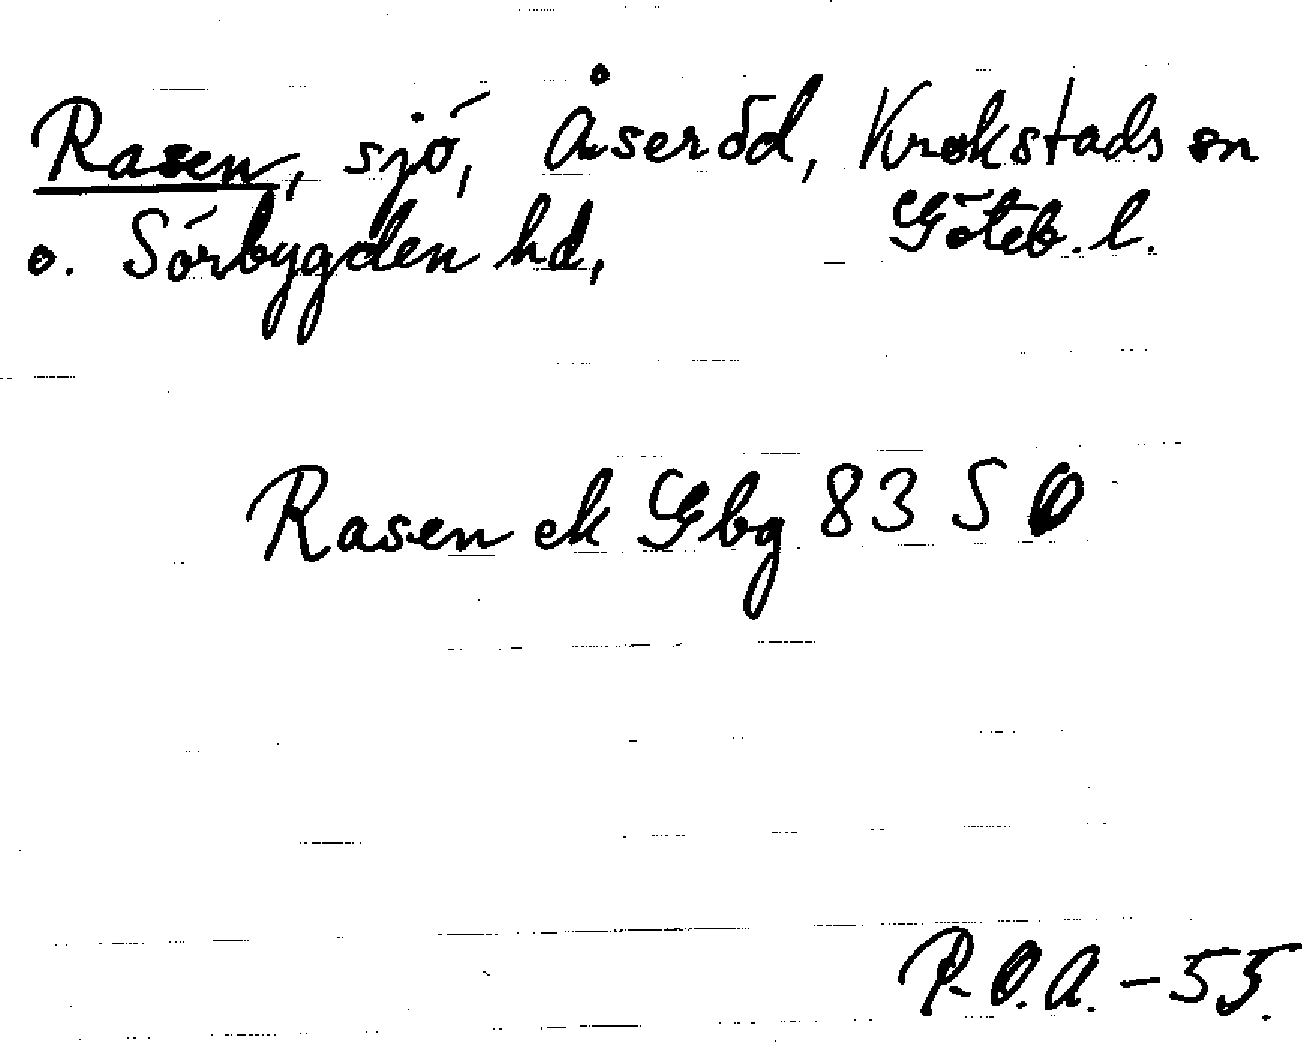 Rasen, sjö, Åseröd, Krokstads sn
o. Sörbygden hd, Göteb. l.
Rasen ek Gbg 83 S O
P.O.A. - 55.